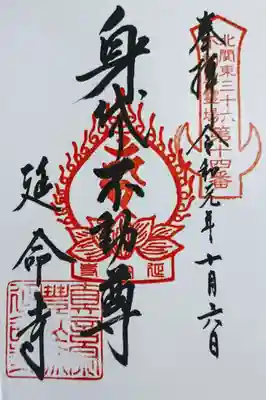 奉拝
令和元年十月六日
北関東三十六
不動尊霊場第十四番
身代不動尊
延命寺